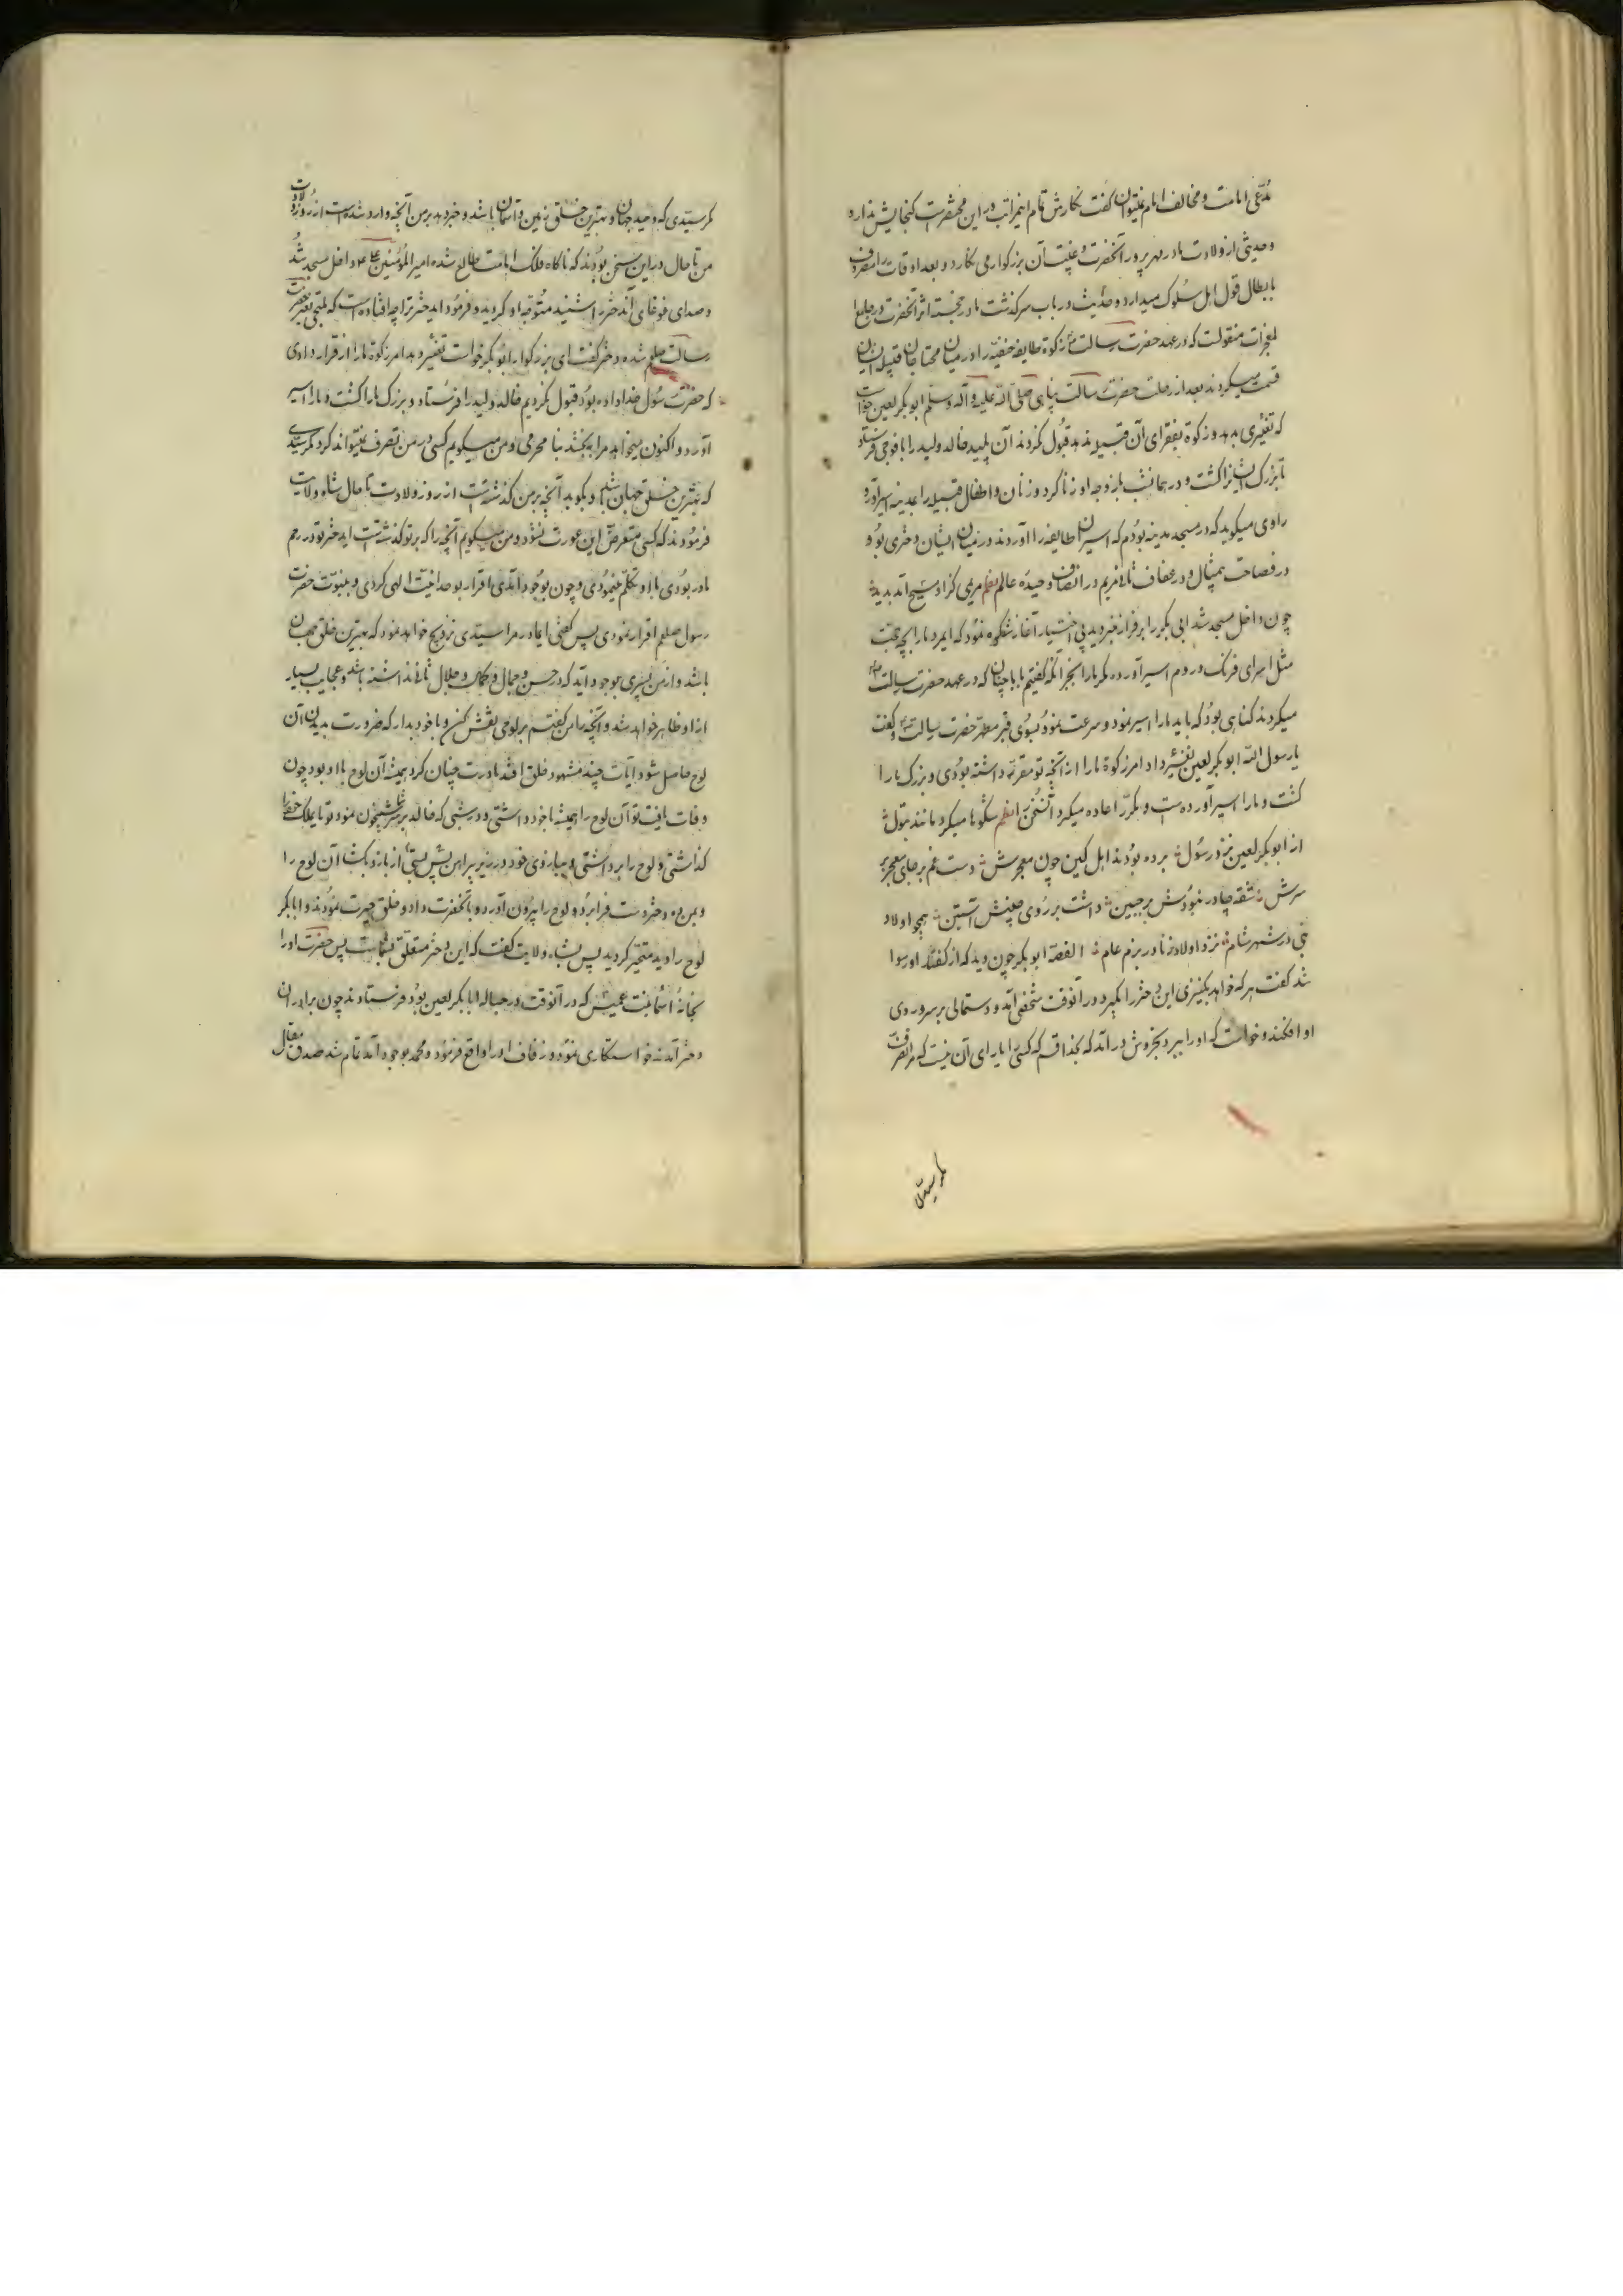 مدعی امامت و مخالف امام نمیتوان گفت نگارش تمام این مراتب در این مختصرات گنجایش ندارد
و حدیثی از ولادت مادر مهرپرور آنحضرت و غیبت آن بزرگوار می نگارد و بعد اوقات را مصروف
بابطال قول اهل سلوک میدارد و حدیث در باب سرگذشت مادر خجسته اثر آنحضرت در جامع
المعجزات منقولست که در عهد حضرت رسالت زکوة طایفه حنفیه را در میان محتاجان قبیله ایشان
قسمت میکردند بعد از رحلت حضرت رسالت پناهی صلی الله علیه و آله و سلم ابوبکر لعین خواست
که تغییری بدهد و زکوة بفقرای آن قبیله ندهد قبول نکردند آن پلید خالد ولید را با فوجی فرستاد
تا بزرگ ایشانرا کشت و در همانشب با زوجه او زنا کرد و زنان و اطفال قبیله را بمدینه اسیر آورد
راوی میگوید که در مسجد مدینه بودم که اسیران طایفه را آوردند و در میان ایشان دختری بود
در فصاحت بیمثال و در عفاف ثانی مریم در انصاف وحیده عالم نظم مریمی کزاد مسیح آمد پدید
چون داخل مسجد شد ابی بکر را بر فراز منبر دید بی اختیار آغاز شکوه نمود که ایمرد ما را بچه جهت
مثل اسرای فرنگ و روم اسیر آورده مگر ما را بجز آنکه گفتیم با ما چنان که در عهد حضرت رسالت
میکردند گناهی بود که باید ما را اسیر نمود و سرعت نمود بسوی قبر مطهر حضرت رسالت و گفت
یا رسول الله ابوبکر لعین تغییر داد امر زکوة ما را از آنچه تو مقرر داشته بودی و بزرگ ما را
کشت و ما را اسیر آورده است و مکرر اعاده میکرد آنسخن را نظم شکوها میکرد مانند بتول
از ابوبکر لعین نزد رسول برده بودند اهل کین چون معجرش دست غم بر جای معجر بر
سرش شقه چادر نبودش بر جبین داشت بر روی حزینش آستین همچو اولاد
نبی در شهر شام نزد اولاد زنا در بزم عام القصه ابوبکر چون دید که از گفتگو او رسوا
شد گفت هر که خواهد بکنیزی این دختر را بگیرد در آنوقت شخصی آمد و دستمالی بر سر و روی
او افکند و خواست که او را ببرد بخروش در آمد که بخدا قسم که کسی را یارای آن نیست که مرا تصرف
مگر سیدی
مگر سیدی که وحید جهان و بهترین خلق زمین و آسمان باشد و خبر دهد بر من آنچه وارد شده است از روز ولادت
من تا حال در این سخن بودند که ناگاه از فلک امامت طالع شده امیرالمؤمنین علیه داخل مسجد شد
و صدای غوغای آندختر را شنید متوجه او گردید و فرمود ایدختر ترا چه افتاده است که ملتجی بقبر حضرت
رسالت صلعم شده دختر گفت ای بزرگوار ابوبکر خواست تغییر دهد امر زکوة ما را از قرار دادی
که حضرت رسول خدا داده بود قبول نکردیم خالد ولید را فرستاد و بزرگ ما را کشت و ما را اسیر
آورد و اکنون میخواهد مرا ببخشد بنا محرمی و من میگویم کسی در من تصرف نمیتواند کرد مگر سیدی
که بهترین خلق جهان باشد و بگوید آنچه بر من گذشته است از روز ولادت تا حال شاه ولایت
فرمودند که کسی متعرض این عورت نشود و من میگویم آنچه را که بر تو گذشته است ایدختر تو در رحم
مادر بودی با او تکلم مینمودی و چون بوجود آمدی اقرار بوحدانیت الهی کردی و بنبوت حضرت
رسول صلعم اقرار نمودی پس گفتی ایمادر مرا سیدی تزویج خواهد نمود که بهترین خلق جهان
باشد و از من پسری بوجود آید که در حسن و جمال و کمال و جلال ثانی نداشته باشد و عجایب بسیار
از او ظاهر خواهد شد و آنچه را من گفتم بر لوحی نقش کن و با خود بدار که ضرورت بدیدن آن
لوح حاصل شود آیات چند مشهود خلق افتد مادرت چنان کرد همیشه آن لوح با او بود چون
وفات یافت تو آن لوح را همیشه با خود داشتی و در شبی که خالد بر شما شبیخون نمود تو تا
گذاشتی و لوح را برداشتی و ببازوی خود در زیر پیراهن پس بستی از بازو بگشا آن لوح را
و بمن ده دختر دست فرا برد و لوح را بیرون آورد و بآنحضرت داد و خلق حیرت نمودند و ابابکر
لوح را دید متحیر گردید پس بشاه ولایت گفت که این دختر متعلق بشماست پس حضرت او را
بخانه اسما بنت عمیس که در آنوقت در حباله ابابکر لعین بود فرستادند چون برادران
دختر آمدند خواستگاری نمود و زفاف او را واقع فرمود و محمد بوجود آمد تمام شد صدق مقال